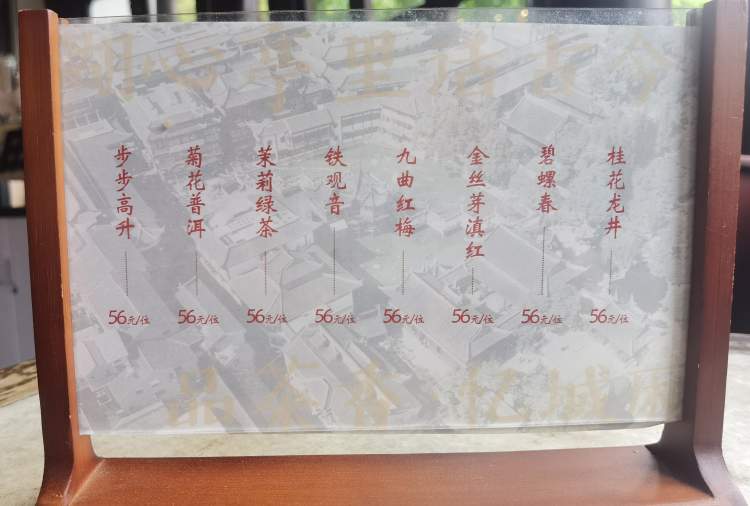 湖心亭里话古今
桂花龙井 56元/位
碧螺春 56元/位
金丝芽滇红 56元/位
九曲红梅 56元/位
铁观音 56元/位
茉莉绿茶 56元/位
菊花普洱 56元/位
步步高升 56元/位
品茶香忆城